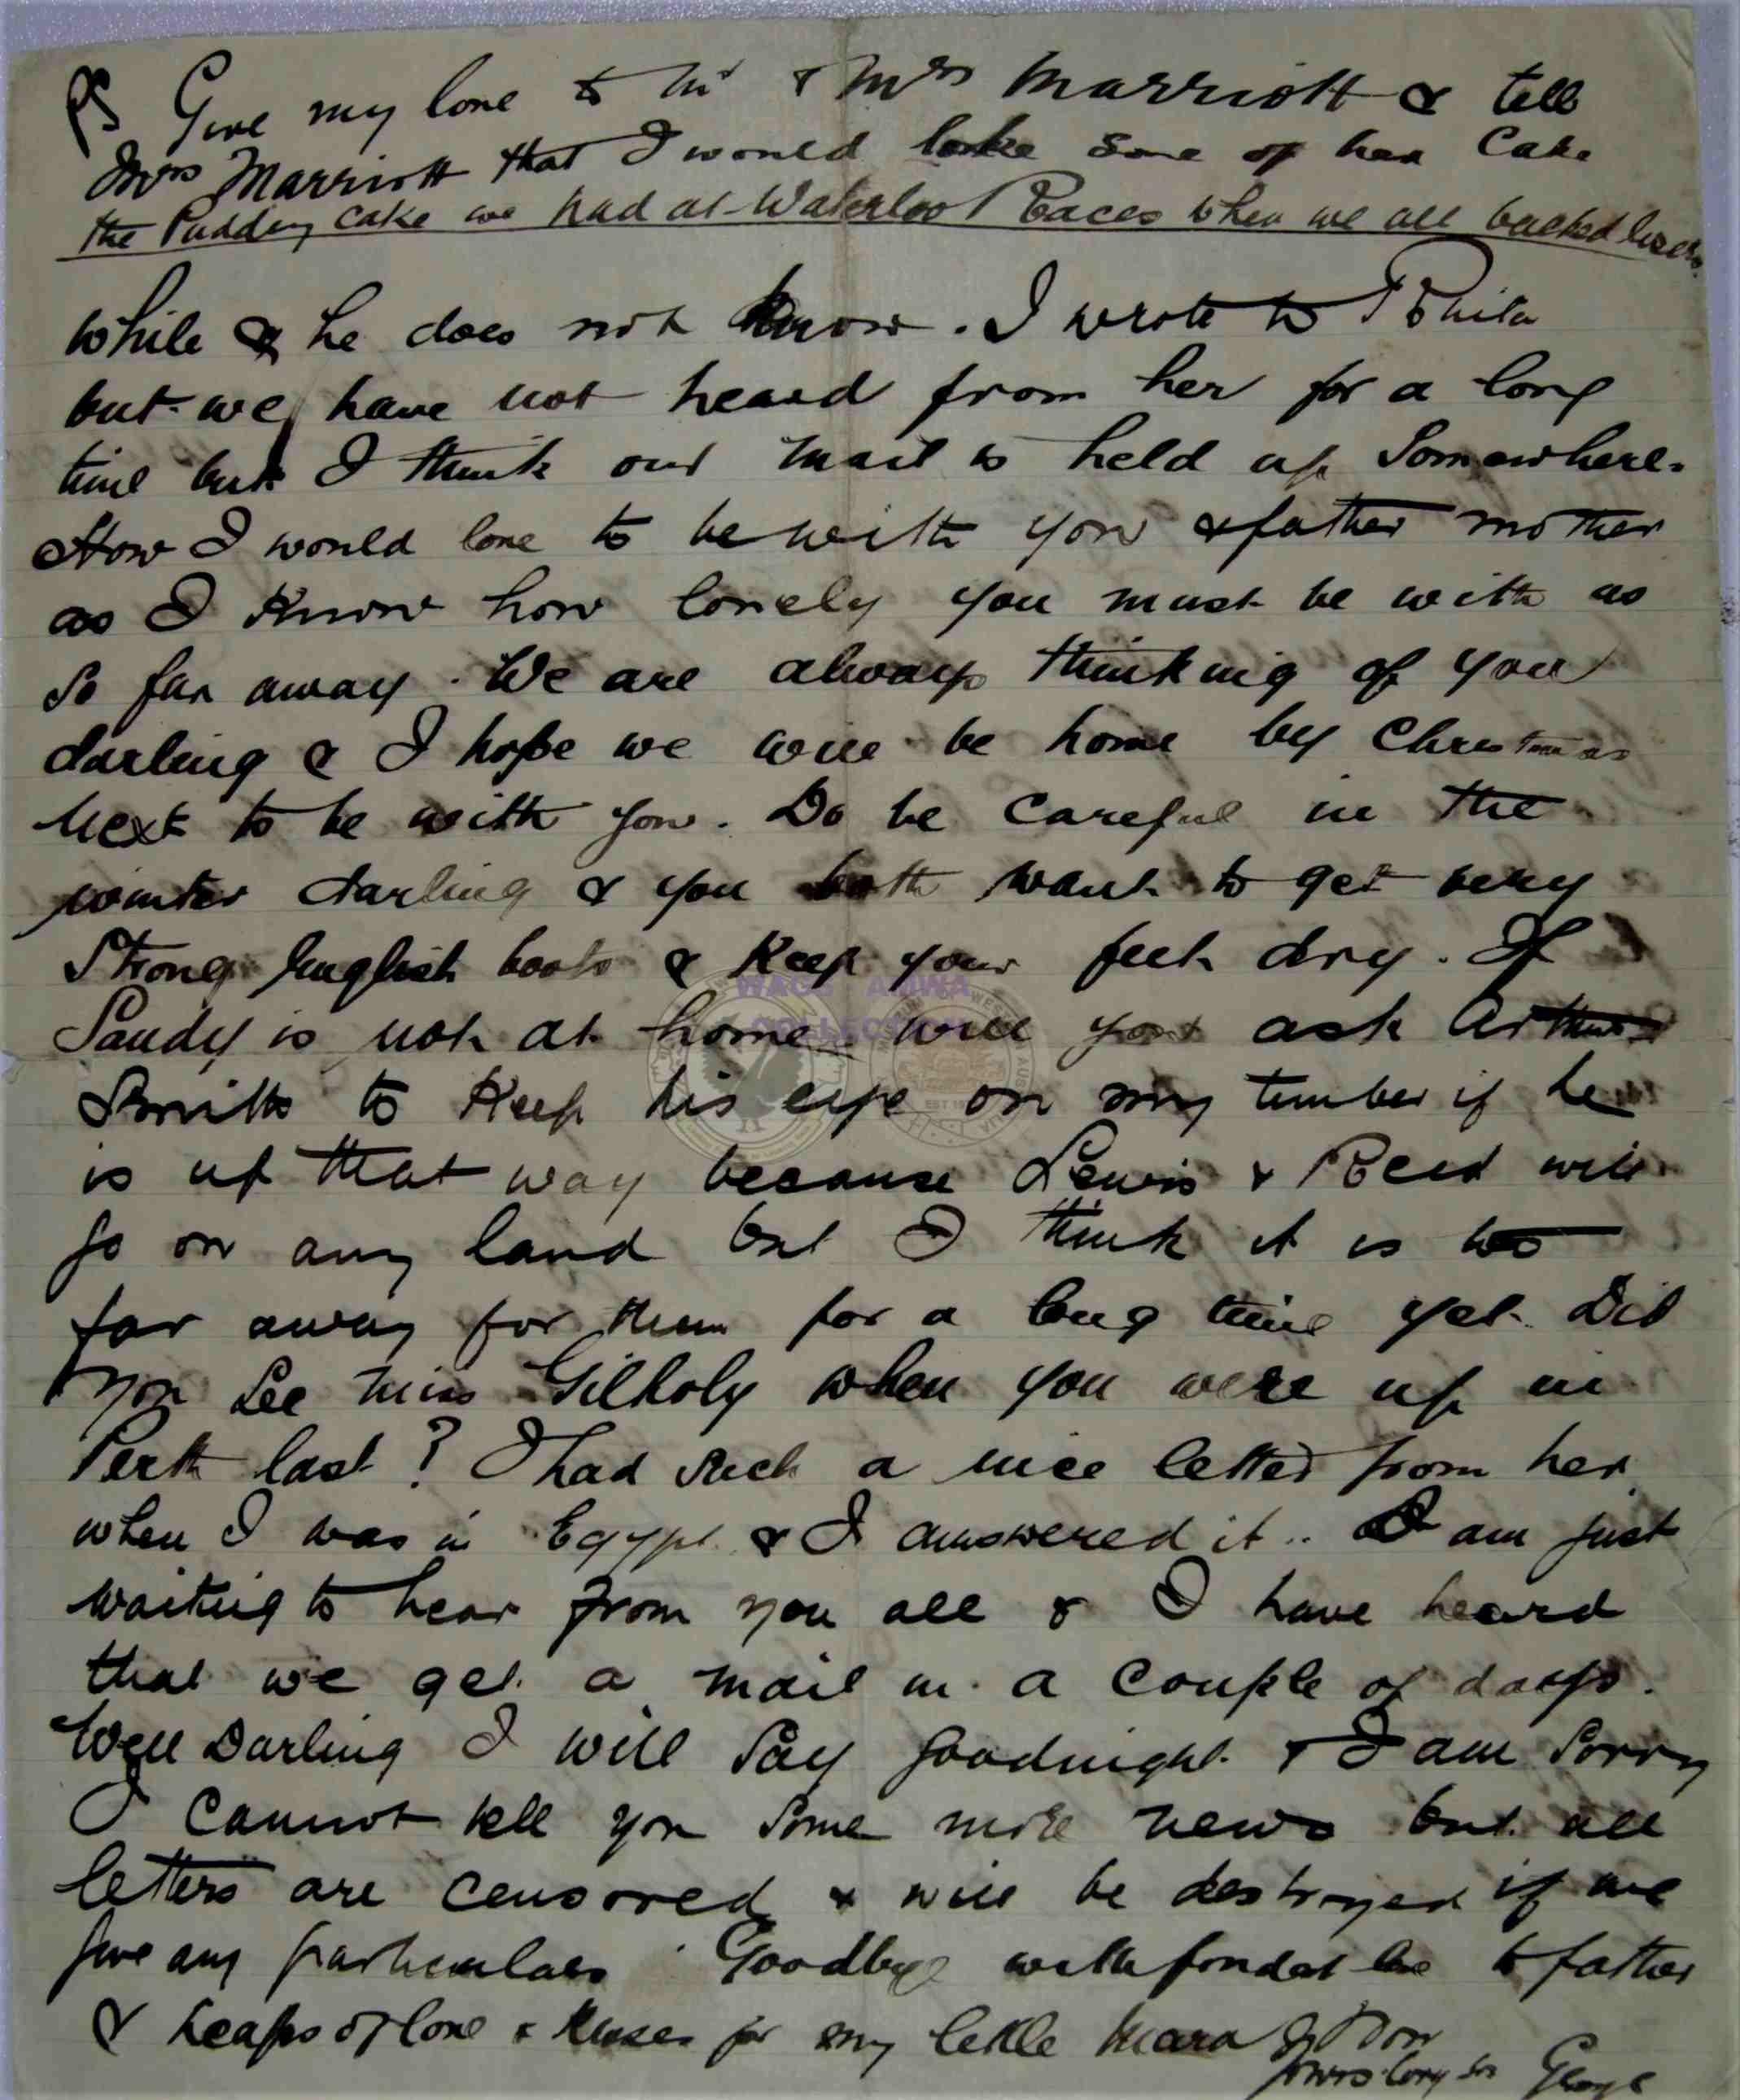 PS Give my love to Mr & Mrs Marriott & tell
Mrs Marriott that I would like some of her Cake
the Pudding cake we had at Waterloo Races when we all backed losers.
while & he does not know. I wrote to
but we have not heard from her for a long
time but I think our mail is held up Somewhere.
How I would love to be with you & father mother
as I know how lonely you must be with us
So far away. We are always thinking of you
darling & I hope we will be home by Christmas
next to be with you. Do be Careful in the
winter darling & you both want to get very
Strong English boots & Keep your feet dry. If
Sandy is not at home will you ask Arthur
Smith to Keep his eye on my timber if he
is up that way because Lewis & Reid will
go on any land but I think it is too
far away for them for a long time yet. Did
you See Miss Gilholy when you were up in
Perth last? I had such a nice letter from her
when I was in Egypt & I answered it.. I am just
waiting to hear from you all & I have heard
that we get a mail in a couple of days.
Well Darling I will Say goodnight & I am Sorry
I Cannot tell you Some more news but all
letters are censored & will be destroyed if we
give any particulars. Goodbye with fondest love to father
& heaps of love & kisses for my little Mara
Yours loving son George
WAGS AMWA
COLLECTION